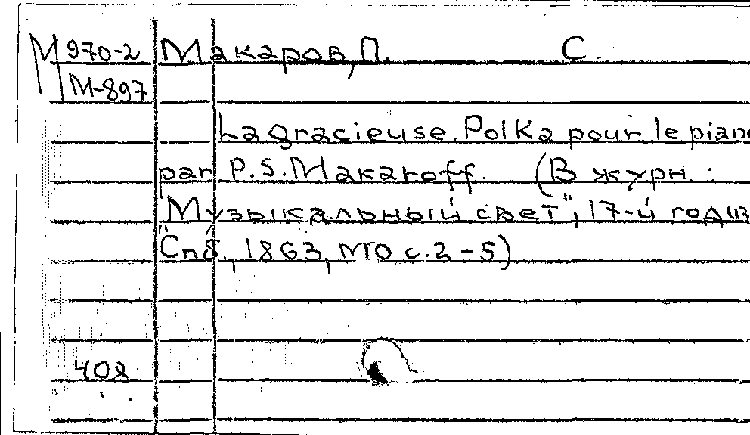 М 970-2 Макаров, П. С.
М-897
La gracieuse. Polka pour le pian
par P.S. Makaroff. (В журн.:
"Музыкальный свет", 17-й год из
Спб., 1863, №10 с. 2-5)
408